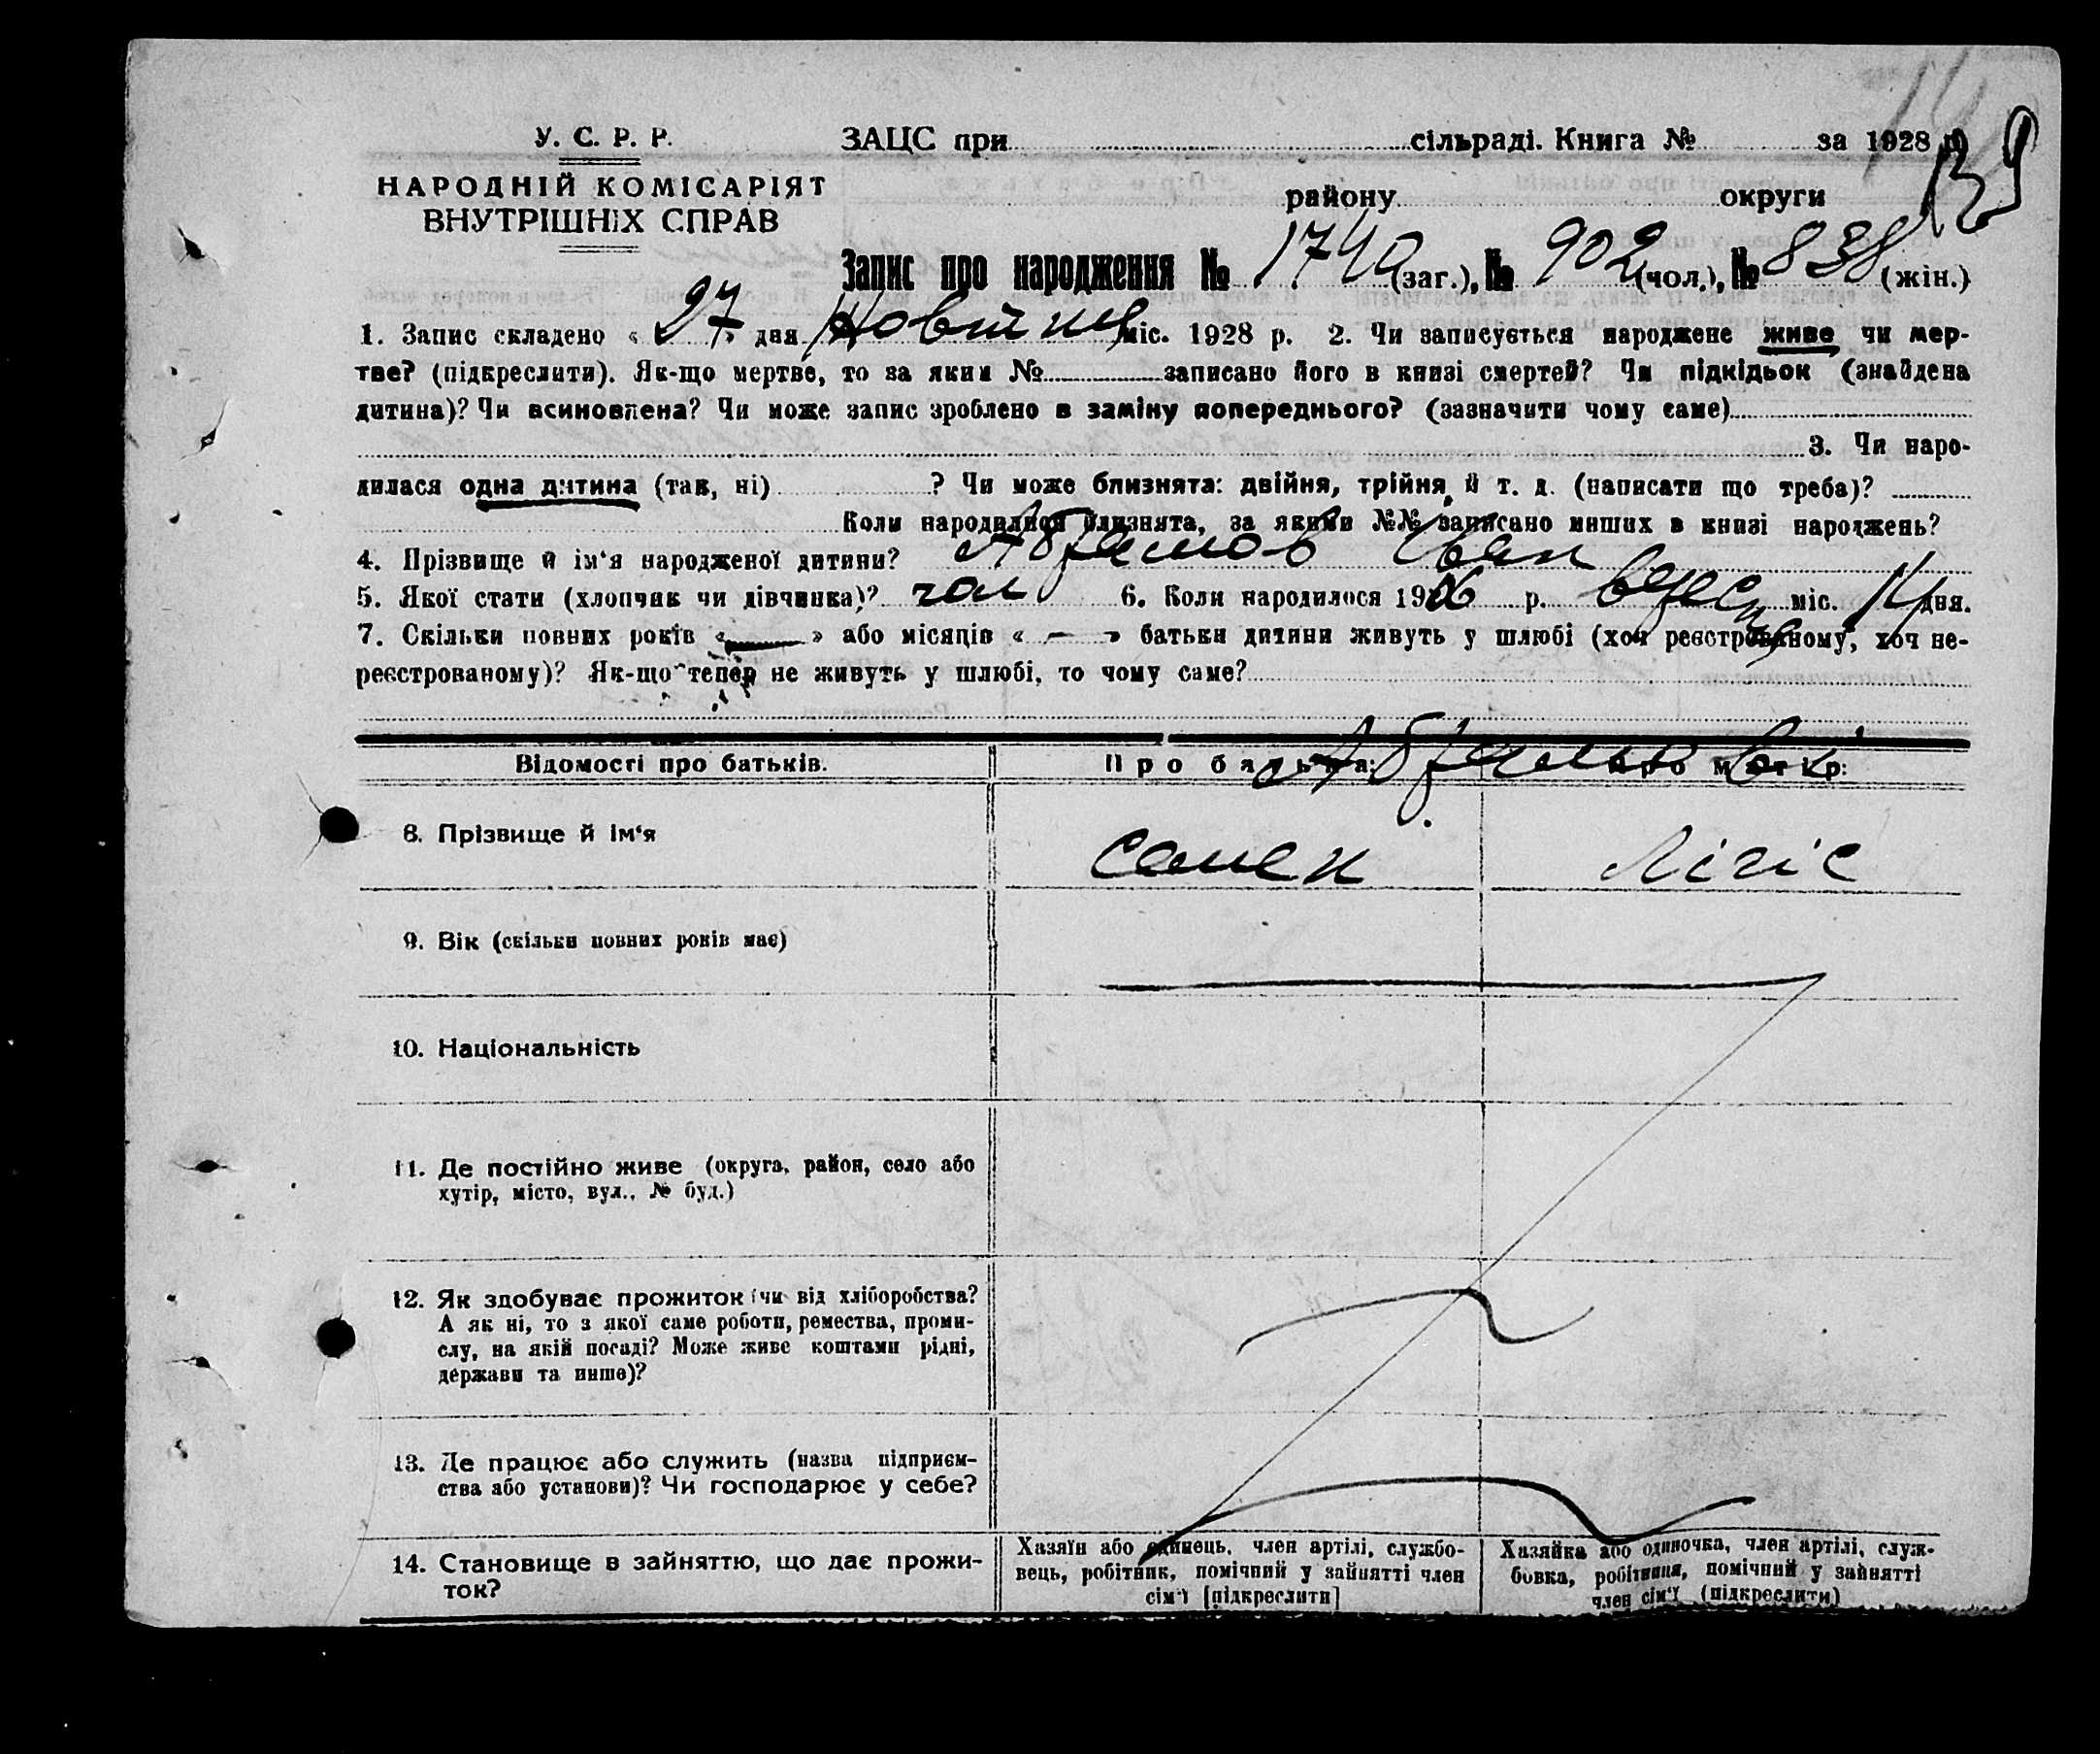 139
У. С. Р. Р.
НАРОДНІЙ КОМІСАРІЯТ
ВНУТРІШНІХ СПРАВ
ЗАЦС при сільраді. Книга № за 1928 р.
району округи
Запис про народження № 1740 (заг.), № 902 (чол.), № 838 (жін.)
1. Запис складено « 27 » дня міс. 1928 р. 2. Чи записується народжене живе чи мер-
тве? (підкреслити). Як-що мертве, то за яким № записано його в книзі смертей? Чи підкідьок (знайдена
дитина)? Чи всиновлена? Чи може запис зроблено в заміну попереднього? (зазначити чому саме)
3. Чи наро-
дилася одна дитина (так, ні) ? Чи може близнята: двійня, трійня й т. д. (написати що треба)?
Коли народилися близнята, за якими №№ записано инших в книзі народжень?
4. Прізвище й ім'я народженої дитини? Абрамов Іван
5. Якої стати (хлопчик чи дівчинка)? чол 6. Коли народилося 19 р. вересня міс. дня.
7. Скільки повних років « — » або місяців « — » батьки дитини живуть у шлюбі (хоч реєстрованому, хоч не-
реєстрованому)? Як-що тепер не живуть у шлюбі, то чому саме?
Відомості про батьків. Про батька: Про матір:
8. Прізвище й ім'я
9. Вік (скільки повних років має)
10. Національність
11. Де постійно живе (округа, район, село або
хутір, місто, вул., № буд.)
12. Як здобуває прожиток (чи від хліборобства?
А як ні, то з якої саме роботи, ремества, проми-
слу, на якій посаді? Може живе коштами рідні,
держави та инше)?
13. Де працює або служить (назва підприєм-
ства або установи)? Чи господарює у себе?
14. Становище в зайняттю, що дає прожи-
ток?
Хазяїн або одинець, член артілі, службо-
вець, робітник, помічний у зайнятті член
сім'ї [підкреслити]
Хазяйка або одиночка, член артілі, служ-
бовка, робітниця, помічний у зайнятті
член сім'ї (підкреслити)